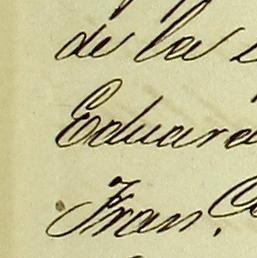 de la
Eduard
Fran.